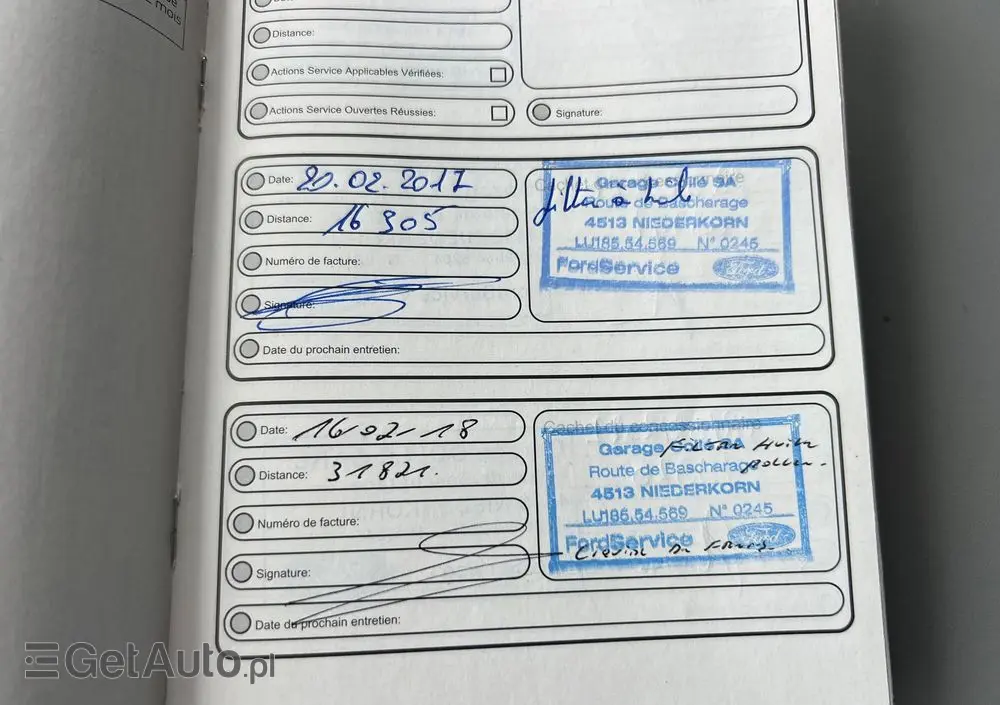 mois
Distance:
Actions Service Applicables Vérifiées:
Actions Service Ouvertes Réussies:
Signature:
Date: 20.02.2017
Distance: 16 305
Numéro de facture:
Signature:
Date du prochain entretien:
Garage SA
Route de Bascharage
4513 NIEDERKORN
LU185.54.569 N° 0245
FordService
Ford
Date: 16-02-18
Distance: 31821.
Numéro de facture:
Signature:
Date du prochain entretien:
Cachet du concessionnaire
Garage
Route de Bascharage
4513 NIEDERKORN
LU185.54.569 N° 0245
FordService
Ford
GetAuto.pl